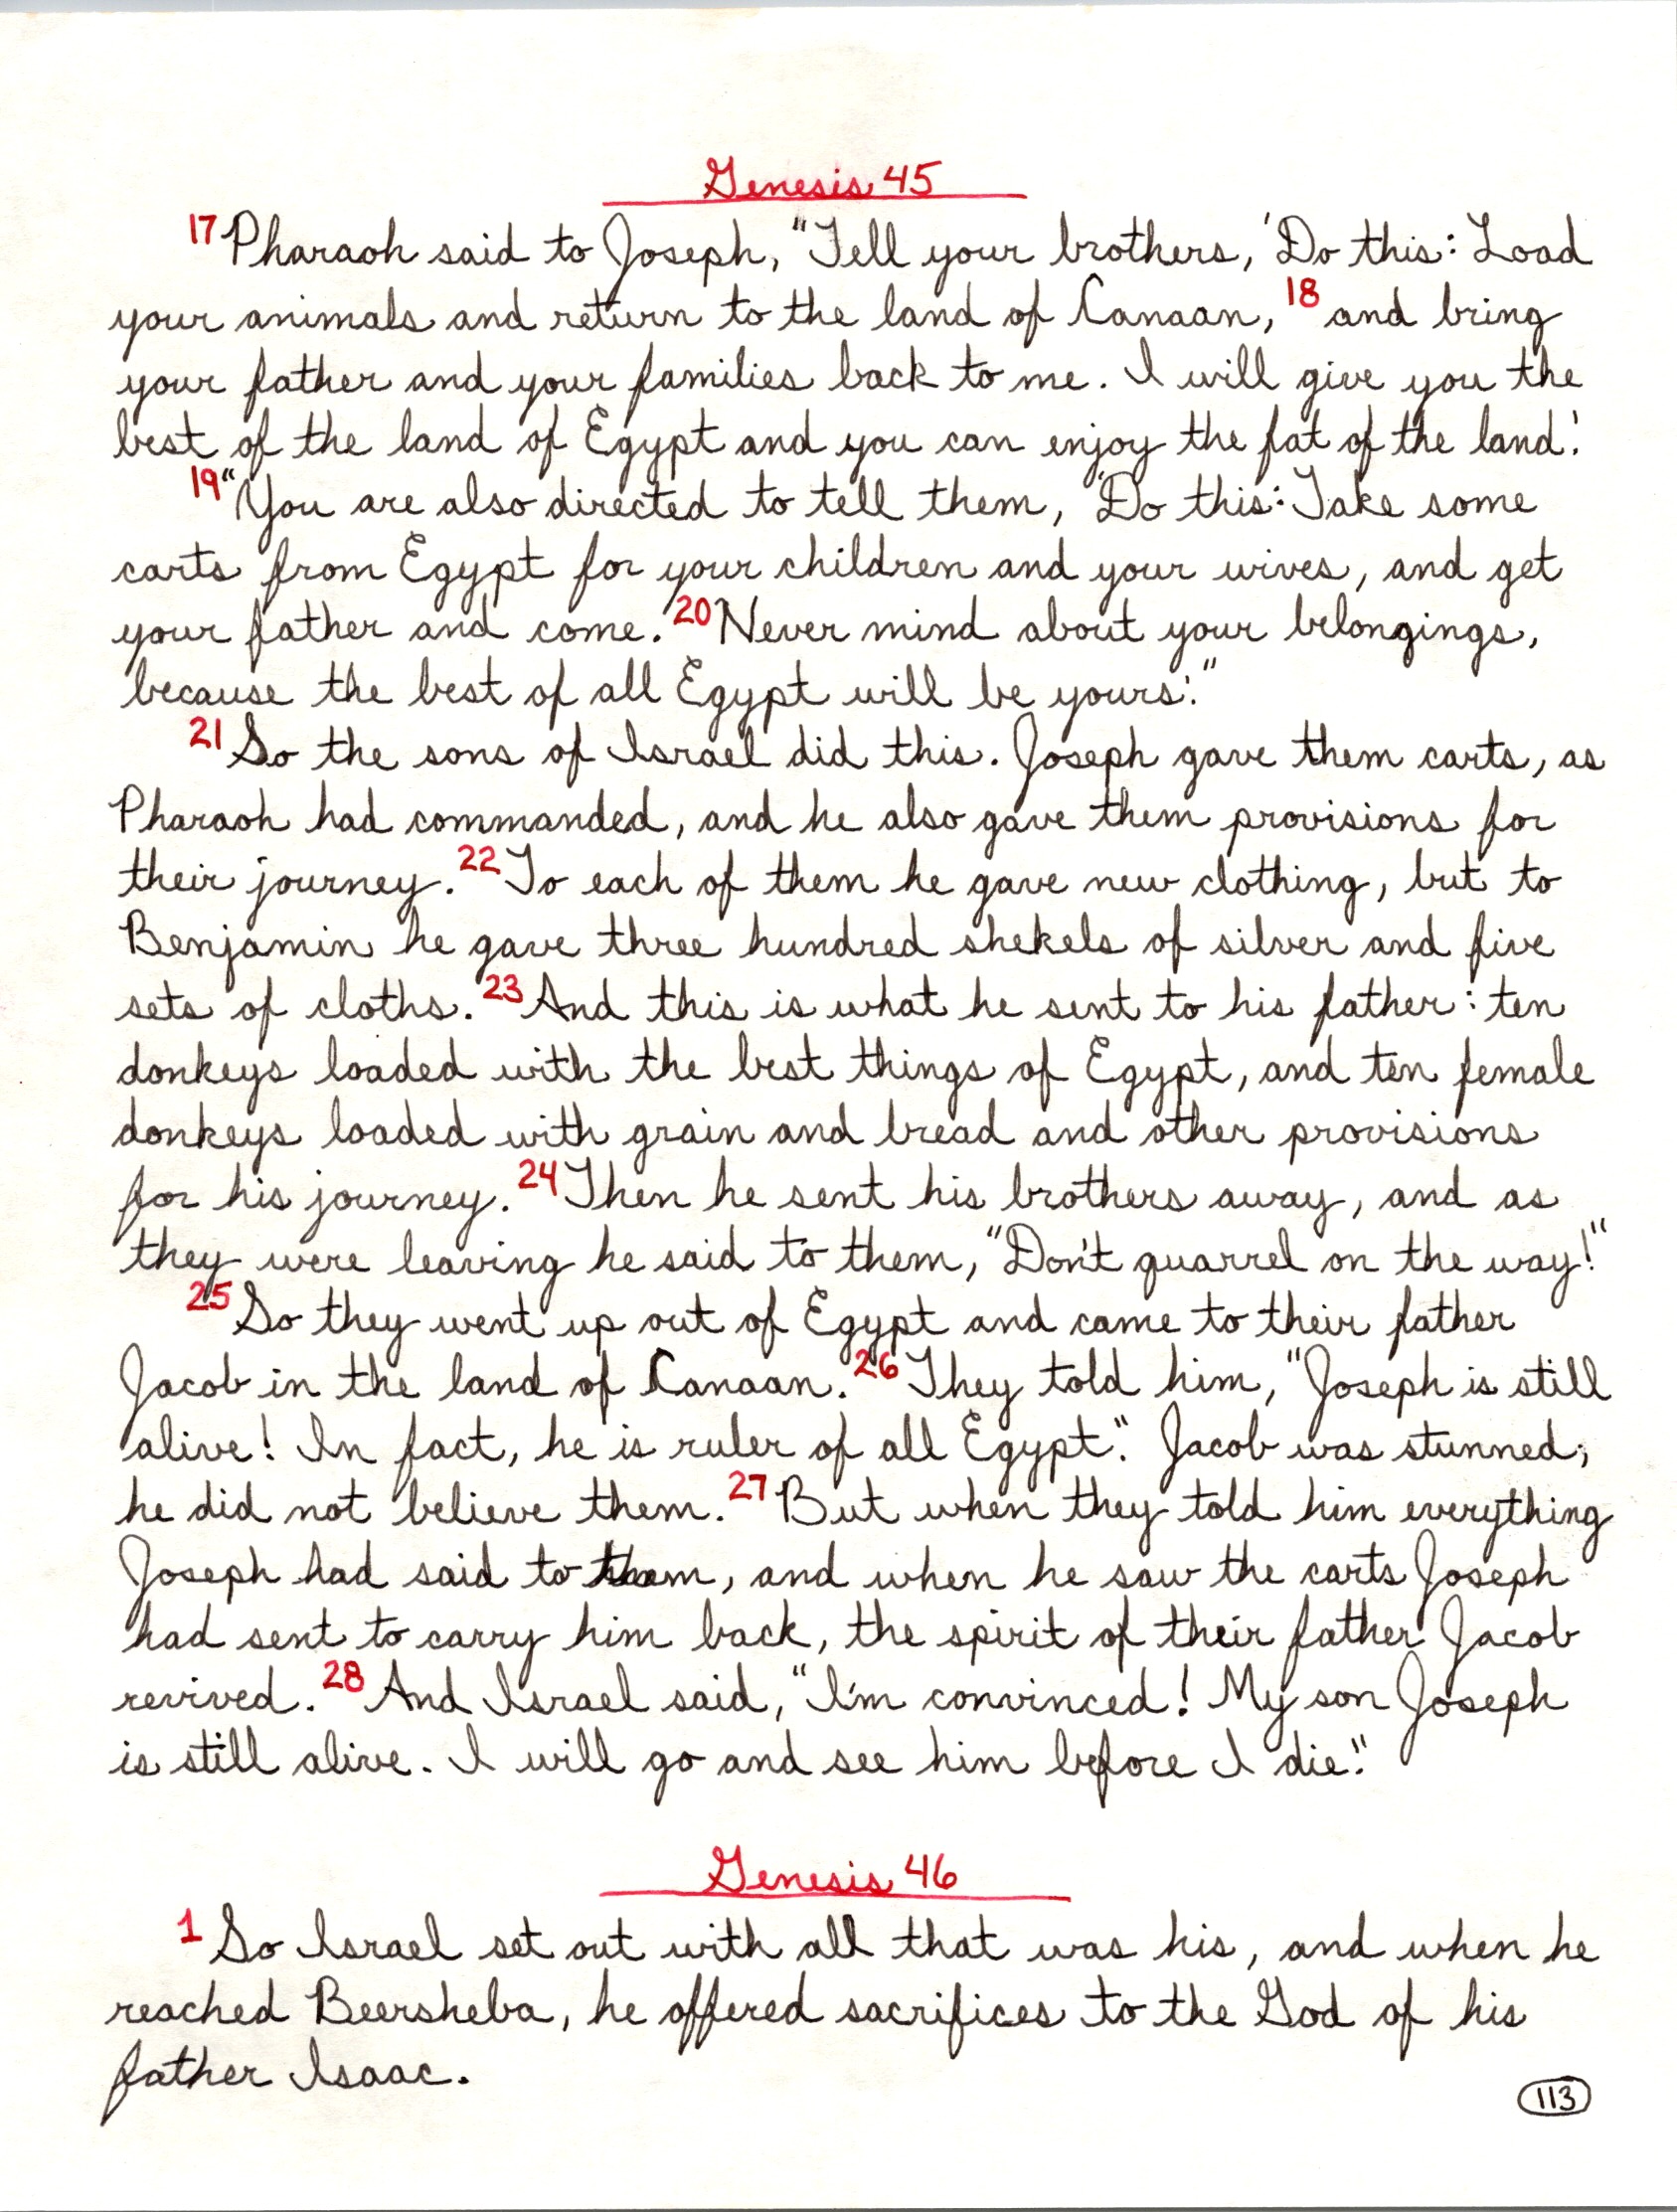 Genesis 45
17 Pharaoh said to Joseph, "Tell your brothers, 'Do this: Load
your animals and return to the land of Canaan, 18 and bring
your father and your families back to me. I will give you the
best of the land of Egypt and you can enjoy the fat of the land.'
19 "You are also directed to tell them, 'Do this: Take some
carts from Egypt for your children and your wives, and get
your father and come. 20 Never mind about your belongings,
because the best of all Egypt will be yours.'"
21 So the sons of Israel did this. Joseph gave them carts, as
Pharaoh had commanded, and he also gave them provisions for
their journey. 22 To each of them he gave new clothing, but to
Benjamin he gave three hundred shekels of silver and five
sets of cloths. 23 And this is what he sent to his father: ten
donkeys loaded with the best things of Egypt, and ten female
donkeys loaded with grain and bread and other provisions
for his journey. 24 Then he sent his brothers away, and as
they were leaving he said to them, "Don't quarrel on the way!"
25 So they went up out of Egypt and came to their father
Jacob in the land of Canaan. 26 They told him, "Joseph is still
alive! In fact, he is ruler of all Egypt." Jacob was stunned;
he did not believe them. 27 But when they told him everything
Joseph had said to them, and when he saw the carts Joseph
had sent to carry him back, the spirit of their father Jacob
revived. 28 And Israel said, "I'm convinced! My son Joseph
is still alive. I will go and see him before I die."
Genesis 46
1 So Israel set out with all that was his, and when he
reached Beersheba, he offered sacrifices to the God of his
father Isaac.
113